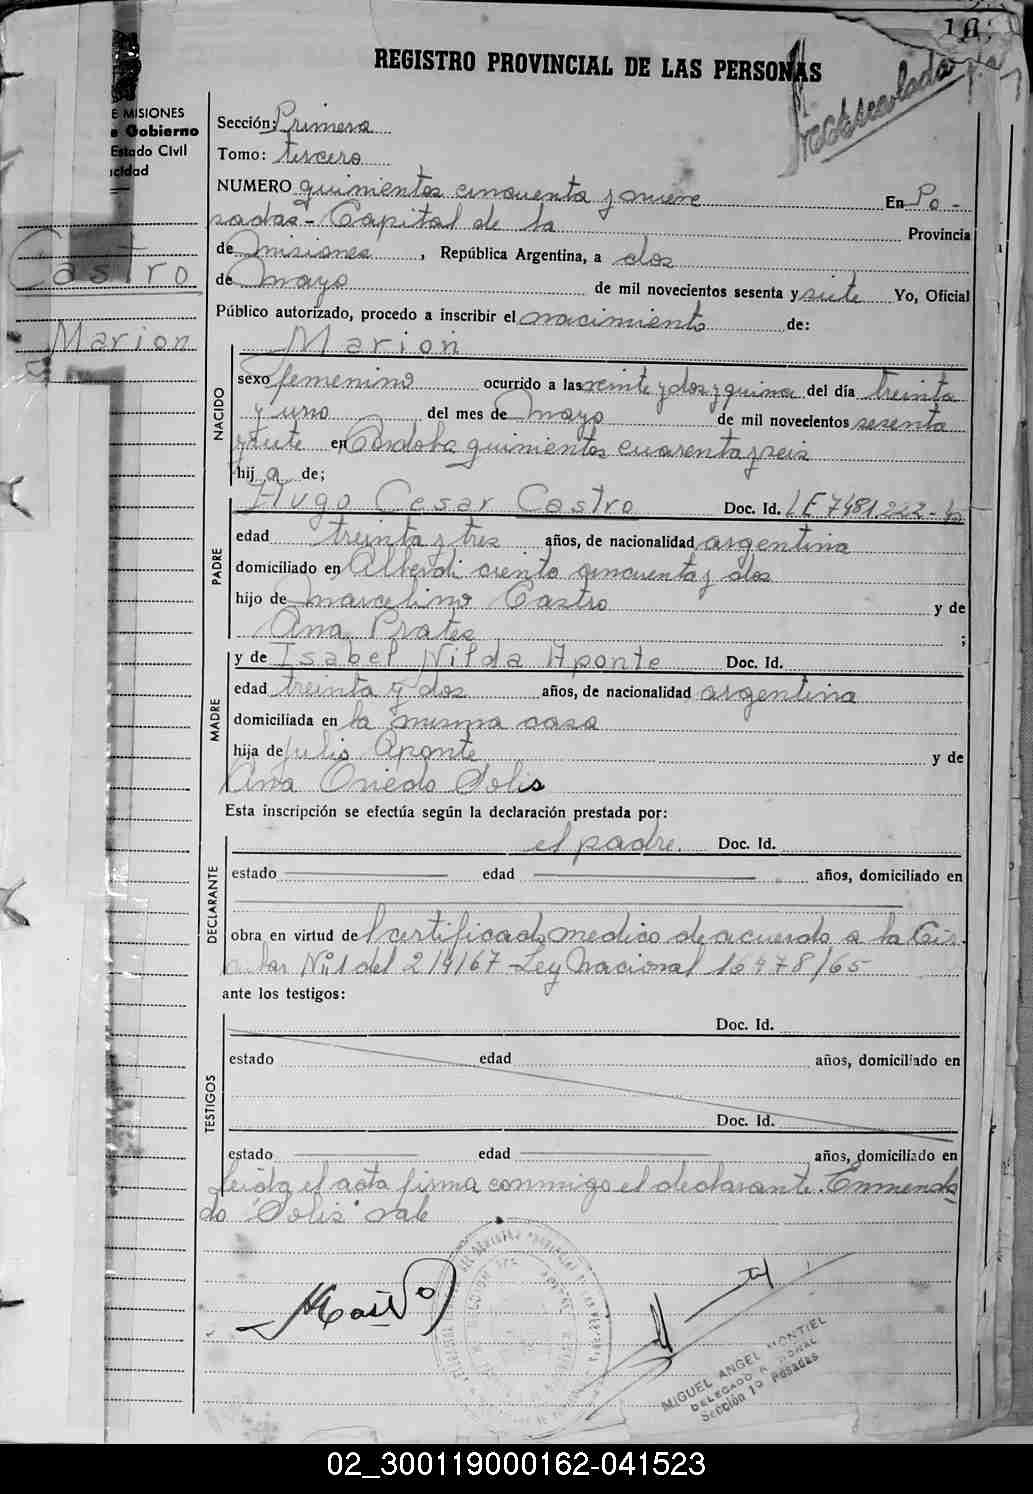 REGISTRO PROVINCIAL DE LAS PERSONAS
E MISIONES
e Gobierno
Estado Civil
acidad
Castro
Marion
Sección: Primera
Tomo: tercero
NUMERO quinientos cincuenta y nueve En Po-
sadas - Capital de la Provincia
de Misiones, República Argentina, a dos
de Mayo de mil novecientos sesenta y siete Yo, Oficial
Público autorizado, procedo a inscribir el nacimiento de:
Marion
NACIDO
sexo femenino ocurrido a las veinte y dos y quince del día treinta
y uno del mes de Mayo de mil novecientos sesenta
y siete en Córdoba quinientos cuarenta y seis
hij a de;
PADRE
Hugo Cesar Castro Doc. Id. LE 7481.222-
edad treinta y tres años, de nacionalidad argentina
domiciliado en Alberdi ciento cincuenta y dos
hijo de Marcelino Castro y de
Ana Prates ;
MADRE
y de Isabel Nilda Aponte Doc. Id.
edad treinta y dos años, de nacionalidad argentina
domiciliada en la misma casa
hija de Julio Aponte y de
Ana Oviedo Solis
Esta inscripción se efectúa según la declaración prestada por:
DECLARANTE
el padre. Doc. Id.
estado edad años, domiciliado en
obra en virtud de l certificado medico de acuerdo a la Cir-
cular Nº 1 del 2/4/67 - Ley Nacional 16478/65
ante los testigos:
TESTIGOS
Doc. Id.
estado edad años, domiciliado en
Doc. Id.
estado edad años, domiciliado en
Leida el acta firma conmigo el declarante. Enmenda
do "Solis" vale
HCastro
MIGUEL ANGEL MONTIEL
DELEGADO
Sección 1º Posadas
02_300119000162-041523